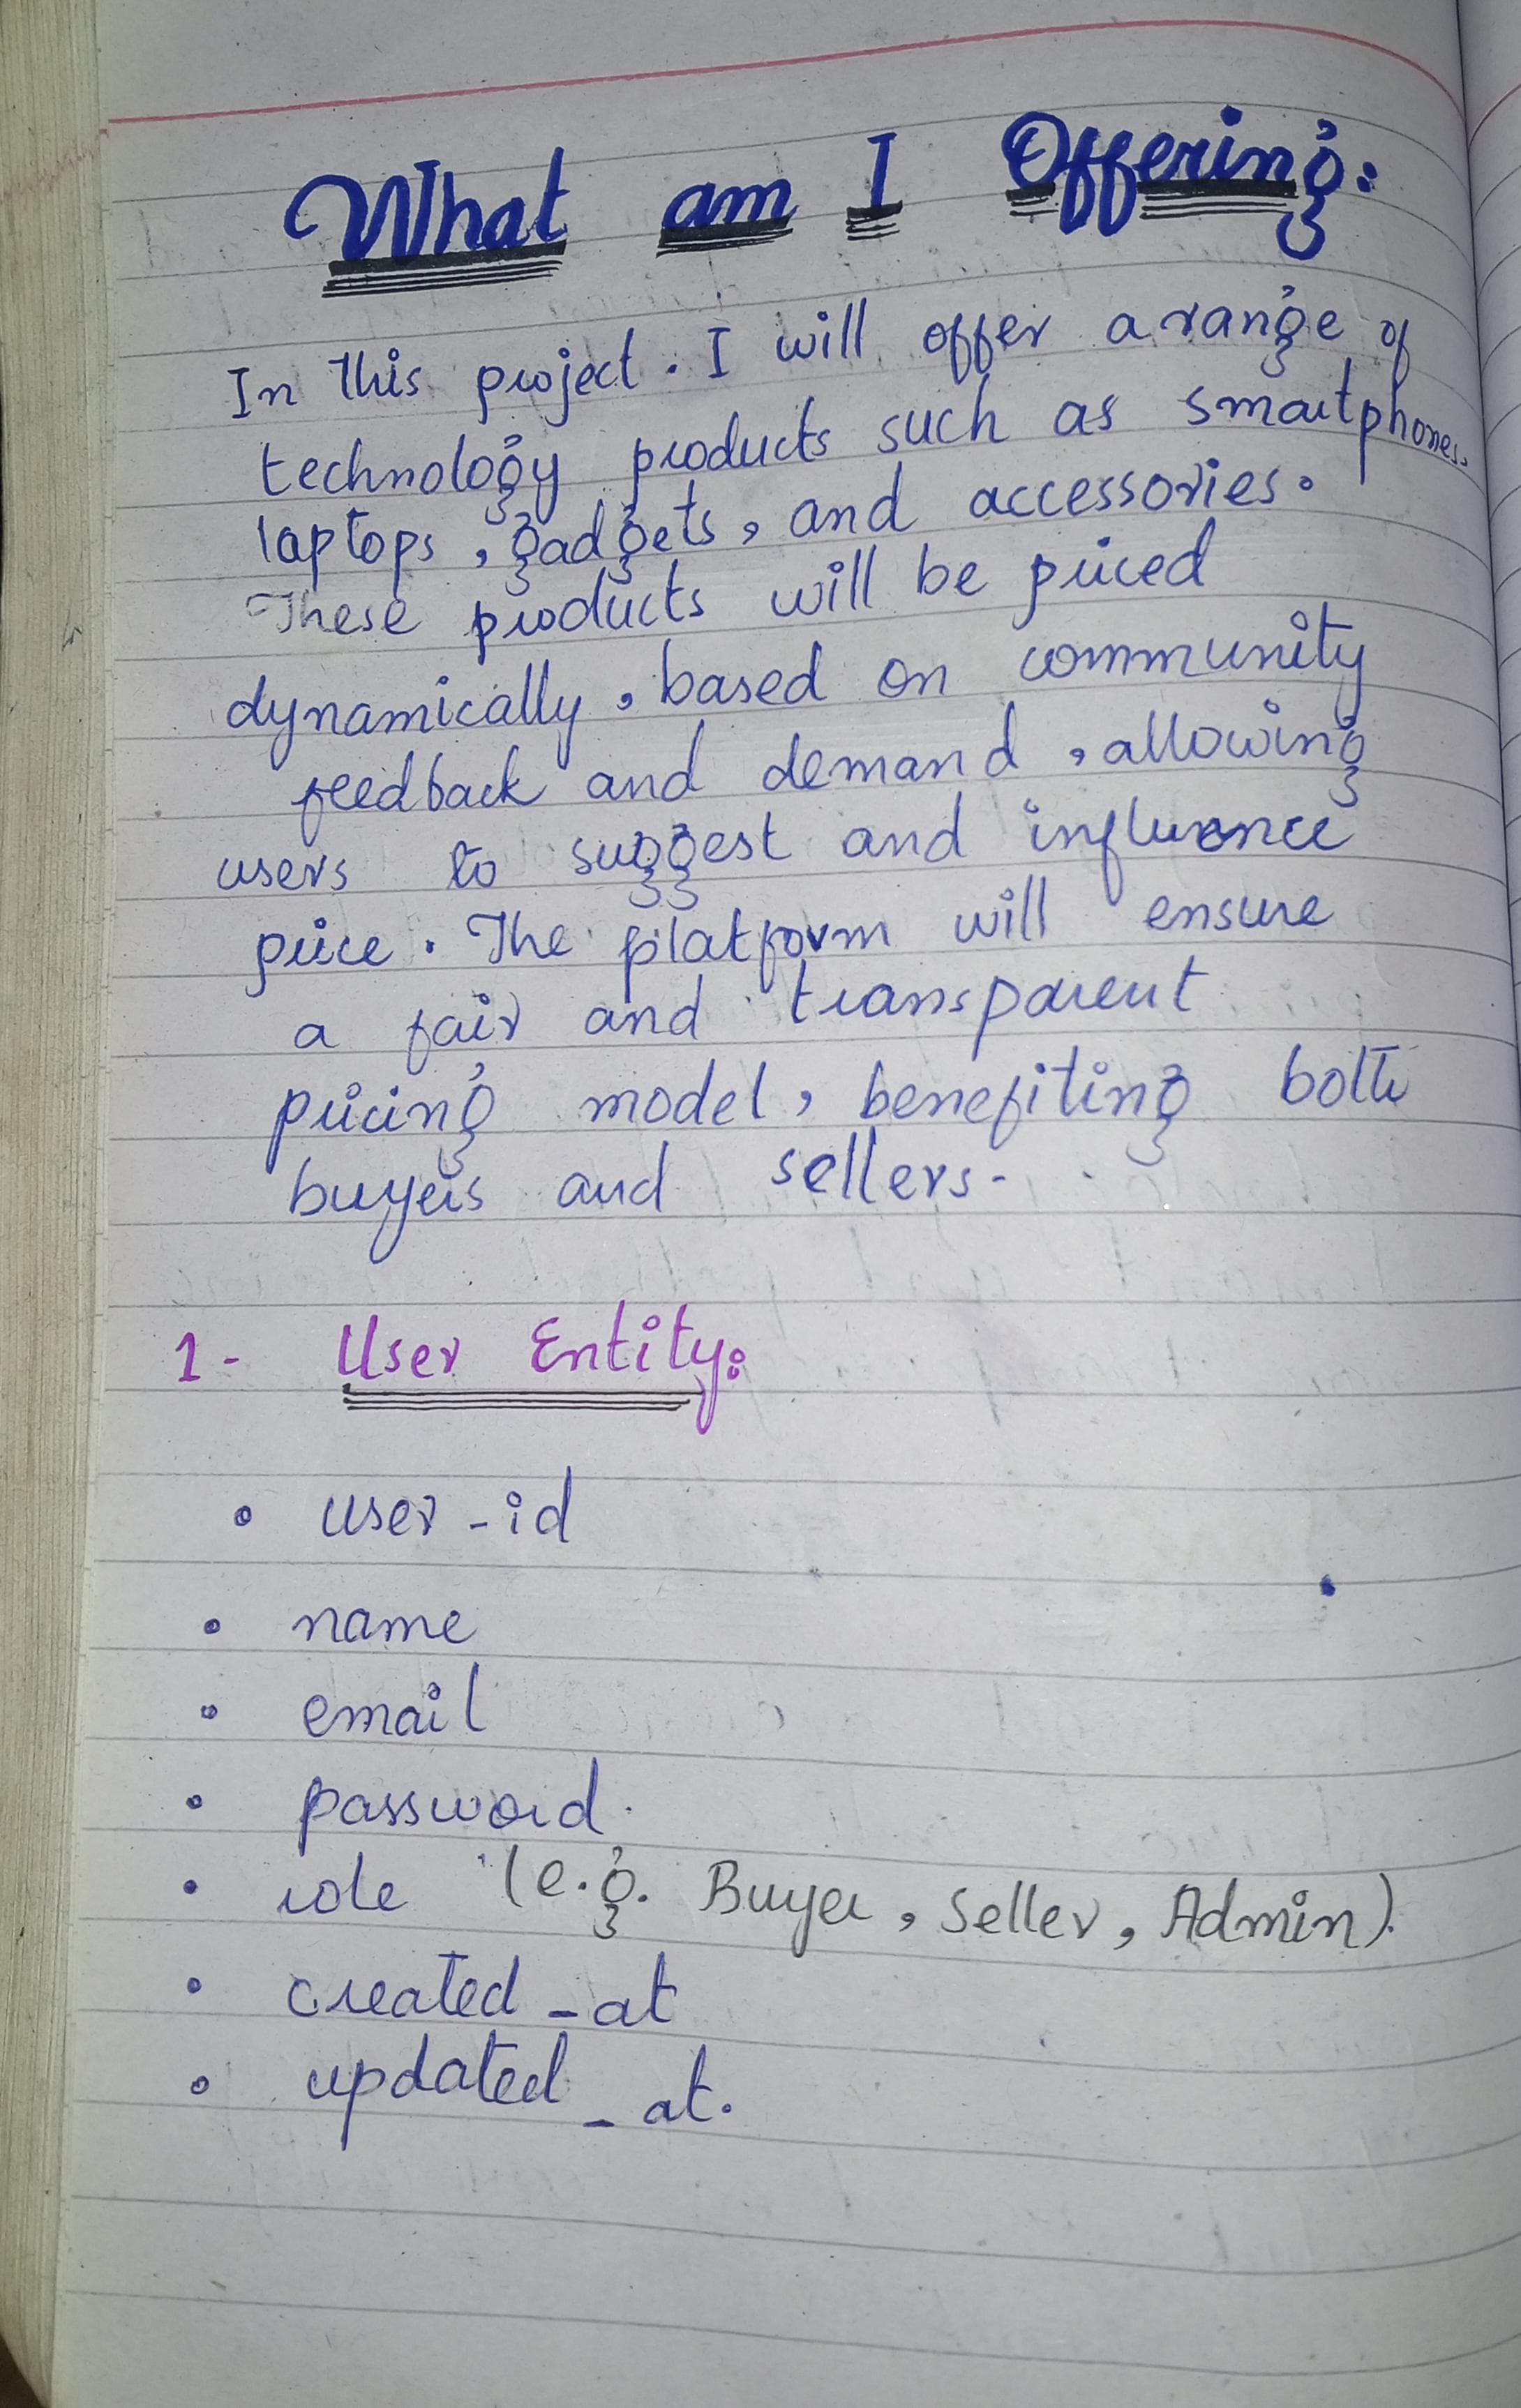 What am I Offering:
In this project. I will offer a range of
technology products such as smartphones,
laptops, gadgets, and accessories.
These products will be priced
dynamically, based on community
feedback and demand, allowing
users to suggest and influence
price. The platform will ensure
a fair and transparent
pricing model, benefiting both
buyers and sellers.
1- User Entity:
• user-id
• name
• email
• password.
• role (e.g. Buyer, Seller, Admin).
• created_at
• updated_at.